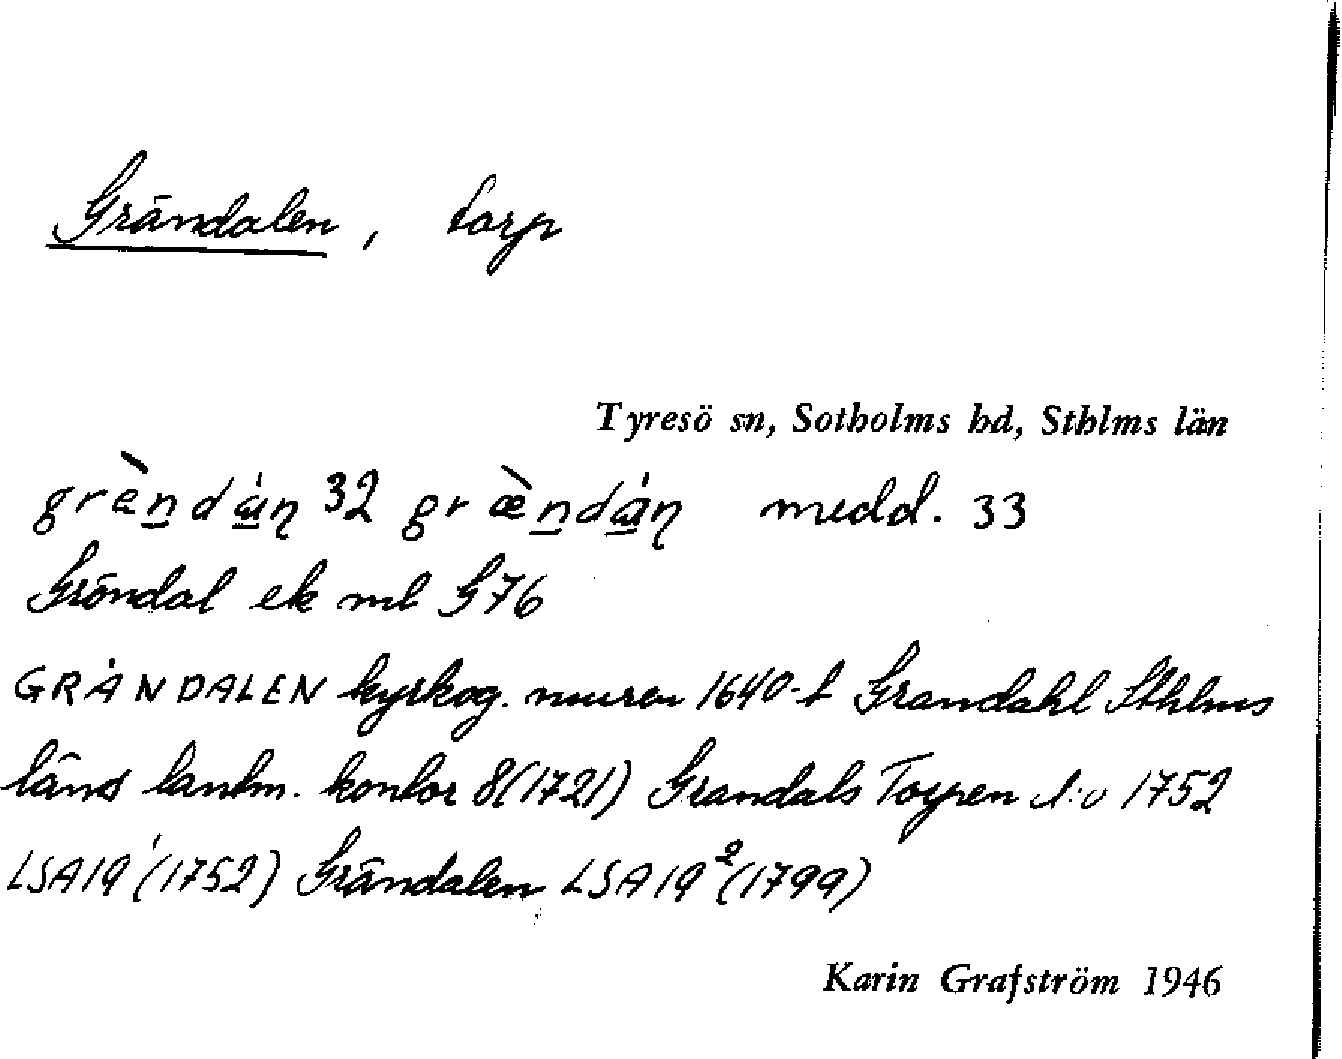 Grändalen, torp
Tyresö sn, Sotholms hd, Sthlms län
grèndán 32 græ̀ndán medd. 33
Gröndal ek ml G76
GRÄNDALEN kyrkog. muren 1640-t Grandahl Sthlms
läns lantm. kontor 8(1721) Grandals Torpen 1752
LSA19¹(1752) Grändalen LSA19²(1799)
Karin Grafström 1946